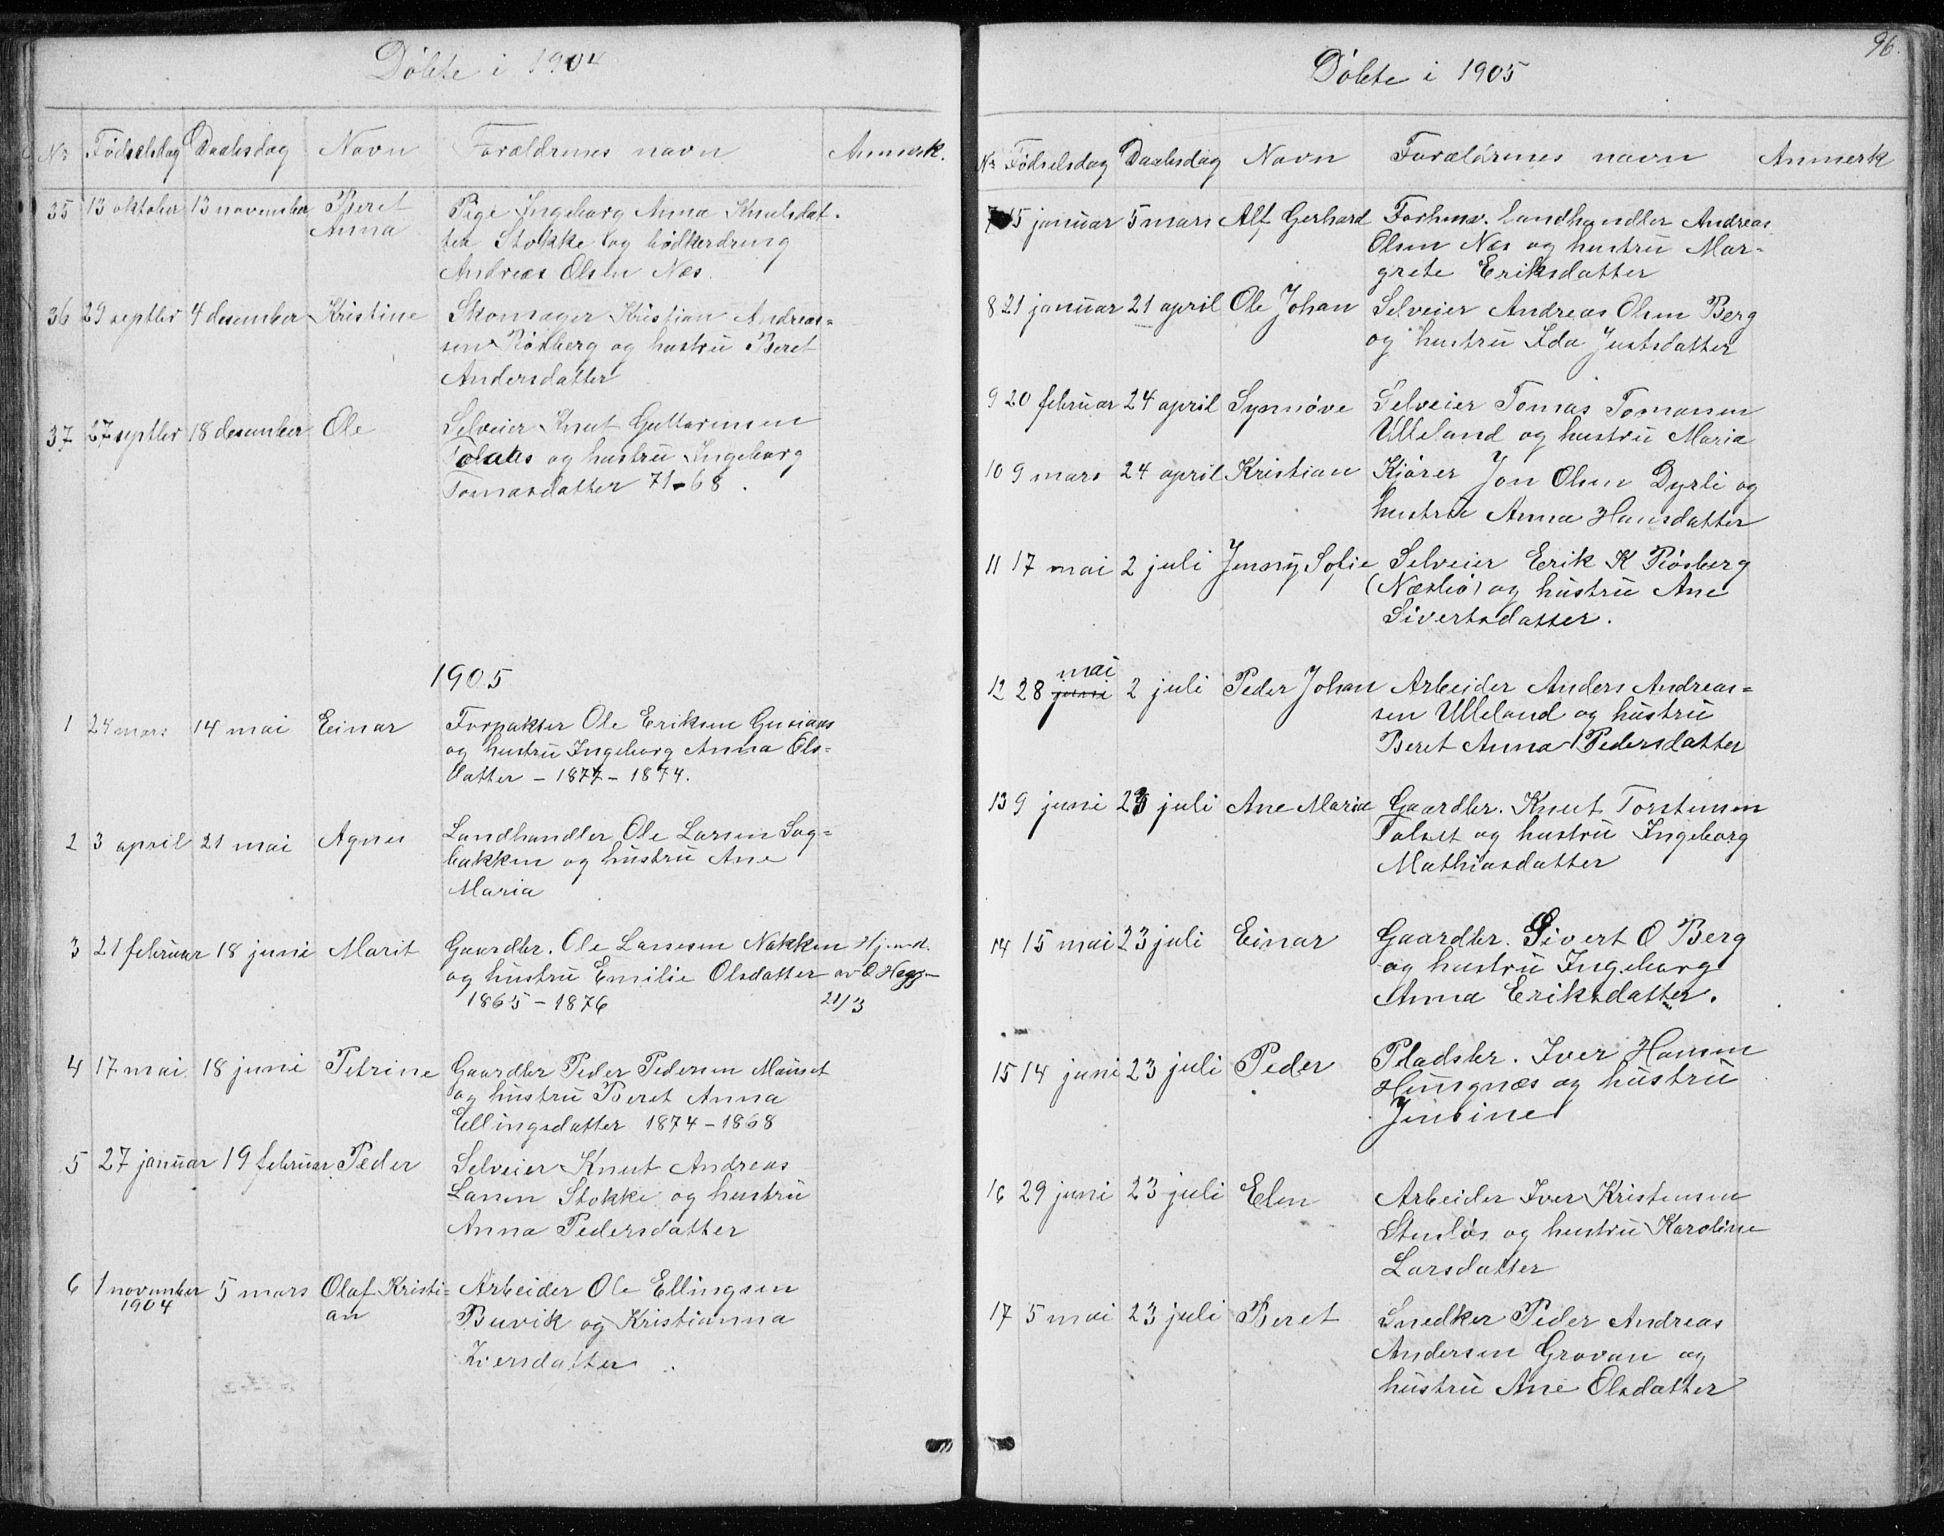 Döbte i 1904
Nr Fødselsdag Daabsdag Navn Forældrenes navn Anmerk.
35 13 oktober 13 november Beret Anna Pige Ingeborg Anna Knutsdat-
ter Stokke og bødkerdreng
Andreas Olsen Næs.
36 29 septbr 4 desember Kristine Skomager Kristian Andreas=
sen Rösberg og hustru Beret
Andersdatter
37 27 septbr 18 desember Ole Selveier Knut Guttormsen
og hustru Ingeborg
Tomasdatter 71-68.
1905
1 24 mars 14 mai Einar Forpakter Ole Eriksen
og hustru Ingeborg Anna Ols=
datter - 1877 - 1874.
2 3 april 21 mai Agnes Landhandler Ole Larsen Sag=
bakken og hustru Ane
Maria
3 21 februar 18 juni Marit Gaardbr. Ole Larssen Nakken Hjemd.
og hustru Emilie Olsdatter av O Hegg-
1865 - 1876 21/3
4 17 mai 18 juni Petrine Gaardbr Peder Pedersen Mauset
og hustru Beret Anna
Ellingsdatter 1874 - 1868
5 27 januar 19 februar Peder Selveier Knut Andreas
Larsen Stokke og hustru
Anna Pedersdatter
6 1 november 5 mars Olaf Kristi= Arbeider Ole Ellingsen
1904 an Buvik og Kristianna
Iversdatter.
96.
Döbte i 1905
Nr Fødselsdag Daabsdag Navn Forældrenes navn Anmerk
7 5 januar 5 mars Alf Gerhard Forhenv. landhandler Andreas
Olsen Næs og hustru Mar-
grete Eriksdatter
8 21 januar 21 april Ole Johan Selveier Andreas Olsen Berg
og hustru Ida Justsdatter
9 20 februar 24 april Synnöve Selveier Tomas Tomassen
Ulleland og hustru Maria
10 9 mars 24 april Kristian Kjörer Jon Olsen Dyrli og
hustru Anna Hansdatter
11 17 mai 2 juli Jenny Sofie Selveier Erik K Rösberg
(Næsbö) og hustru Ane
Sivertsdatter.
mai
12 28 juni 2 juli Peder Johan Arbeider Anders Andreas=
sen Ulleland og hustru
Beret Anna Pedersdatter
13 9 juni 23 juli Ane Marie Gaardbr. Knut Torstensen
Talset og hustru Ingeborg
Mathiasdatter
14 15 mai 23 juli Einar Gaardbr. Sivert O Berg
og hustru Ingeborg
Anna Eriksdatter.
15 14 juni 23 juli Peder Pladsbr. Iver Hansen
Hungnæs og hustru
Jensine
16 29 juni 23 juli Elen Arbeider Iver Kristensen
Stenlös og hustru Karoline
Larsdatter
17 5 mai 23 juli Beret Snedker Peder Andreas
Andersen Grovan og
hustru Ane Olsdatter